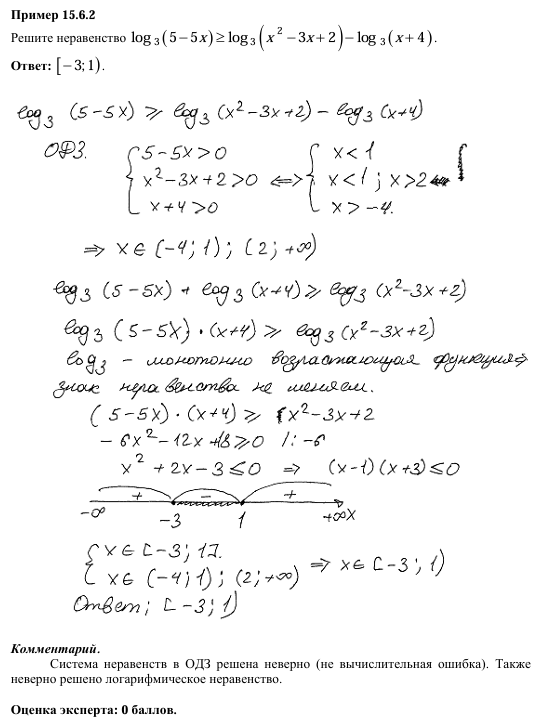 Пример 15.6.2
Решите неравенство log₃(5−5x) ≥ log₃(x²−3x+2) − log₃(x+4).
Ответ: [−3;1).
log₃ (5−5x) ≥ log₃ (x²−3x+2) − log₃ (x+4)
ОДЗ. { 5−5x>0 ; x²−3x+2>0 ; x+4>0 ⇔ { x<1 ; x<1 ; x>2 ; x>−4. {
⇒ x ∈ (−4; 1) ; (2; +∞)
log₃ (5−5x) + log₃ (x+4) ≥ log₃ (x²−3x+2)
log₃ (5−5x) · (x+4) ≥ log₃ (x²−3x+2)
log₃ – монотонно возрастающая функция ⇒
знак неравенства не меняем.
(5−5x) · (x+4) ≥ x²−3x+2
−6x²−12x+18≥0 /: −6
x²+2x−3≤0 ⇒ (x−1)(x+3)≤0
+ − +
−∞ −3 1 +∞ x
{ x ∈ [−3; 1].
{ x ∈ (−4; 1) ; (2; +∞) ⇒ x ∈ [−3; 1)
Ответ; [−3; 1)
Комментарий.
Система неравенств в ОДЗ решена неверно (не вычислительная ошибка). Также
неверно решено логарифмическое неравенство.
Оценка эксперта: 0 баллов.